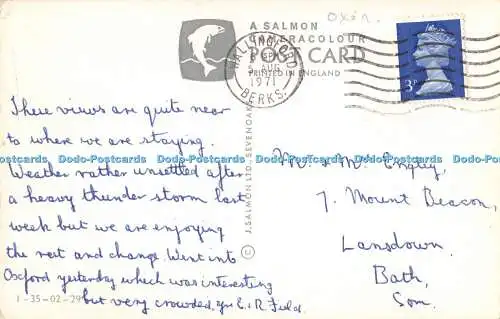 Oxon.
A SALMON
CAMERACOLOUR
POST CARD
PRINTED IN ENGLAND
WALLINGFORD
AUG
1971
BERKS.
3P
These views are quite near
to where we are staying.
Weather rather unsettled after
a heavy thunder storm last
week but we are enjoying
the rest and change. Went into
Oxford yesterday which was interesting
but very crowded, yrs E. & R. Field.
1-35-02-29
© J. SALMON LTD., SEVENOAKS
Mr. & Mrs. Empey,
7 Mount Beacon,
Lansdown,
Bath,
Som.
Dodo-Postcards Dodo-Postcards Dodo-Postcards Dodo-Postcards Dodo-Postcards Dodo-Postcards